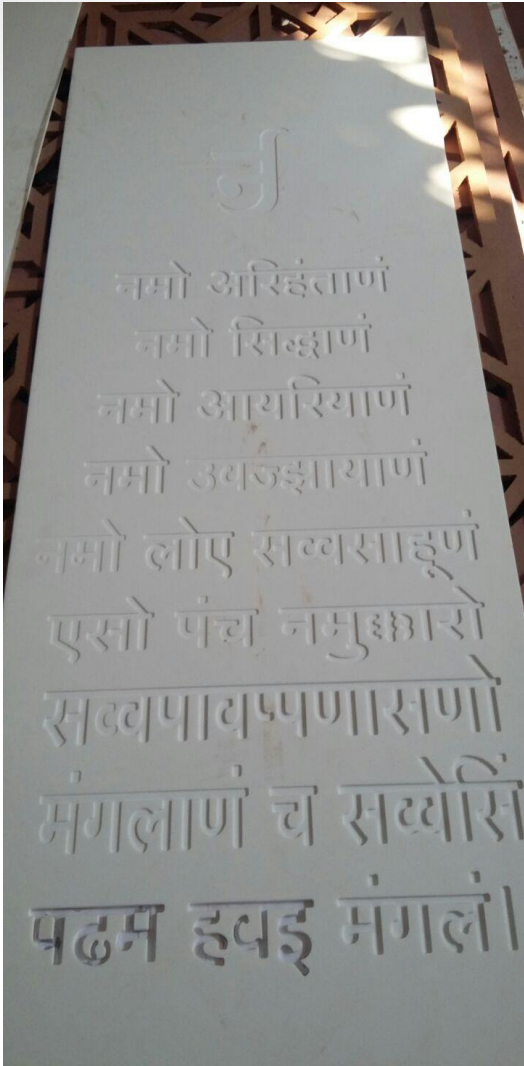 नमो अरिहंताणं
नमो सिद्धाणं
नमो आयरियाणं
नमो उवज्झायाणं
नमो लोए सव्वसाहूणं
एसो पंच नमुक्कारो
सव्वपावप्पणासणो
मंगलाणं च सव्वेसिं
पढम हवइ मंगलं।